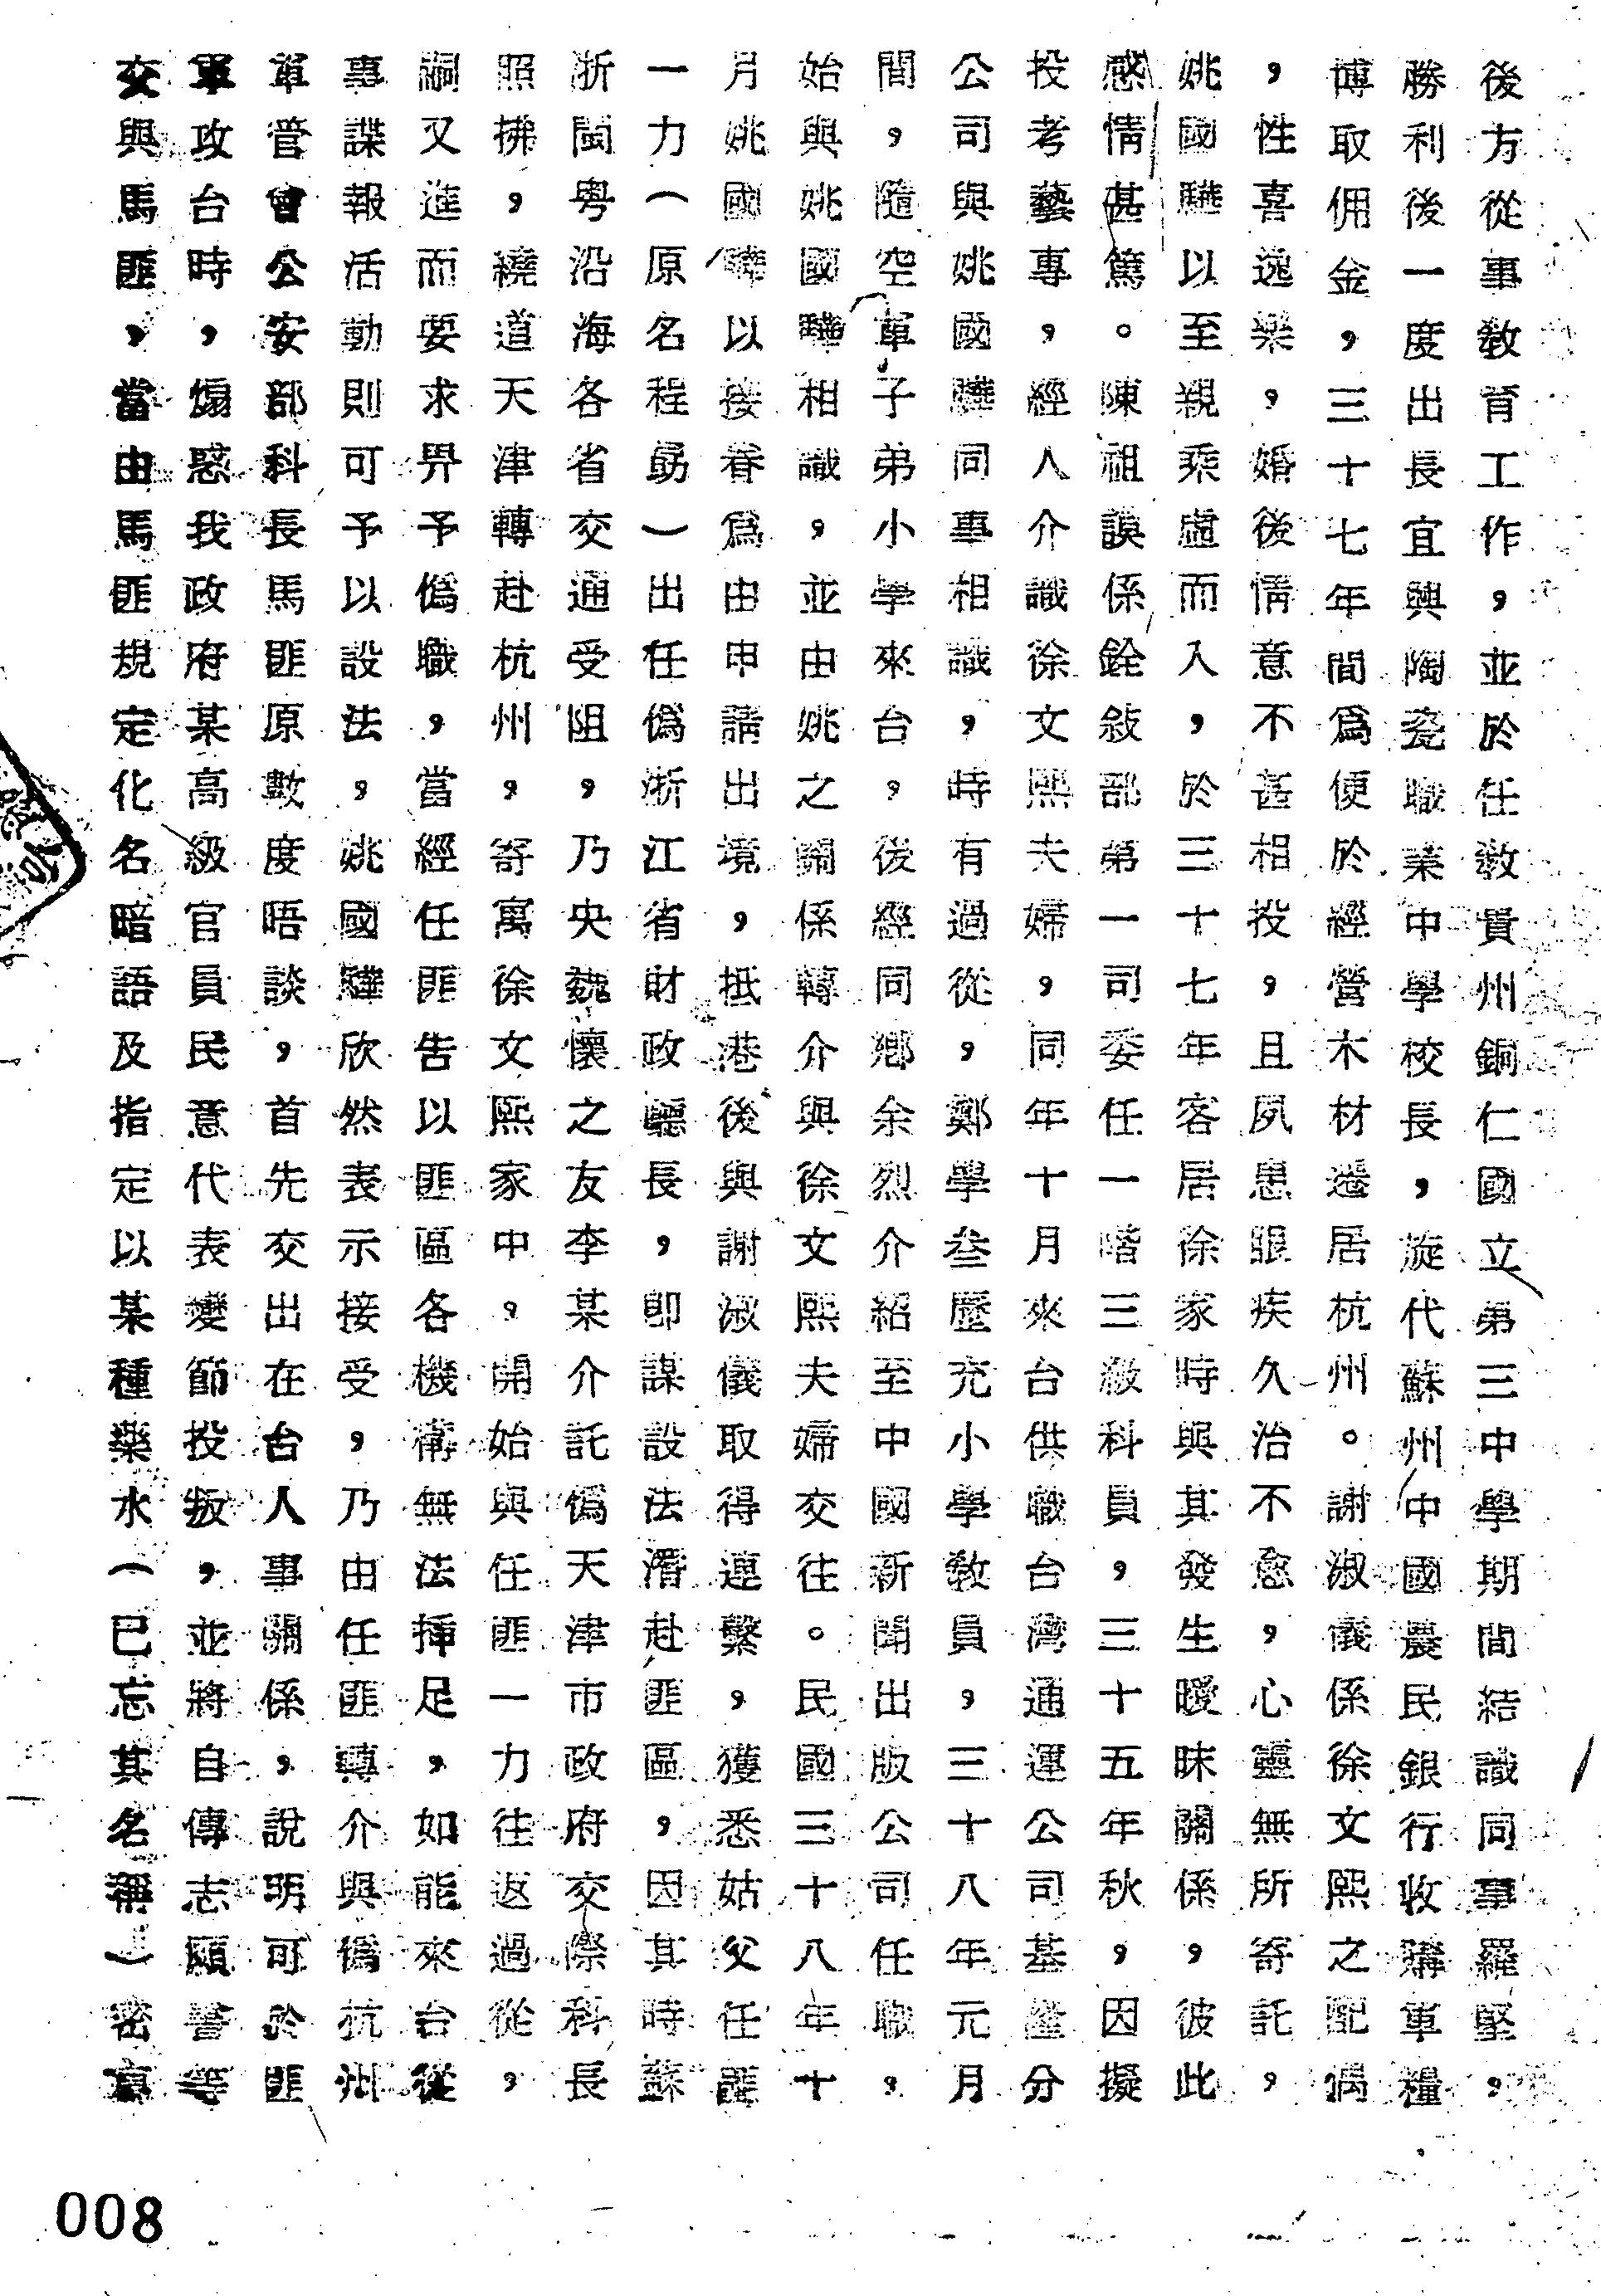 後方從事教育工作，並於任教貴州銅仁國立第三中學期間結識同事羅堅，
勝利後一度出長宜興陶瓷職業中學校長，旋代蘇州中國農民銀行收購軍糧，
博取佣金，三十七年間為便於經營木材遷居杭州。謝淑儀係徐文熙之配偶
，性喜逸樂，婚後情意不甚相投，且夙患眼疾久治不愈，心靈無所寄託，
姚國驊以至親乘虛而入，於三十七年客居徐家時與其發生曖昧關係，彼此
感情甚篤。陳祖謨係銓敍部第一司委任一階三級科員，三十五年秋，因擬
投考藝專，經人介識徐文熙夫婦，同年十月來台供職台灣通運公司基隆分
公司與姚國驊同事相識，時有過從，鄭學叁歷充小學教員，三十八年元月
間，隨空軍子弟小學來台，後經同鄉余烈介紹至中國新聞出版公司任職，
始與姚國驊相識，並由姚之關係轉介與徐文熙夫婦交往。民國三十八年十
月姚國驊以接眷為由申請出境，抵港後與謝淑儀取得連繫，獲悉姑父任匪
一力（原名程勗）出任偽浙江省財政廳長，即謀設法潛赴匪區，因其時蘇
浙閩粵沿海各省交通受阻，乃央魏懷之友李某介託偽天津市政府交際科長
照拂，繞道天津轉赴杭州，寄寓徐文熙家中。開始與任匪一力往返過從，
嗣又進而要求畀予偽職，當經任匪告以匪區各機構無法插足，如能來台從
事諜報活動則可予以設法，姚國驊欣然表示接受，乃由任匪轉介與偽杭州
軍管會公安部科長馬匪原數度晤談，首先交出在台人事關係，說明可於匪
軍攻台時，煽惑我政府某高級官員民意代表變節投叛，並將自傳志願書等
交與馬匪，當由馬匪規定化名暗語及指定以某種藥水（已忘其名稱）密寫
008